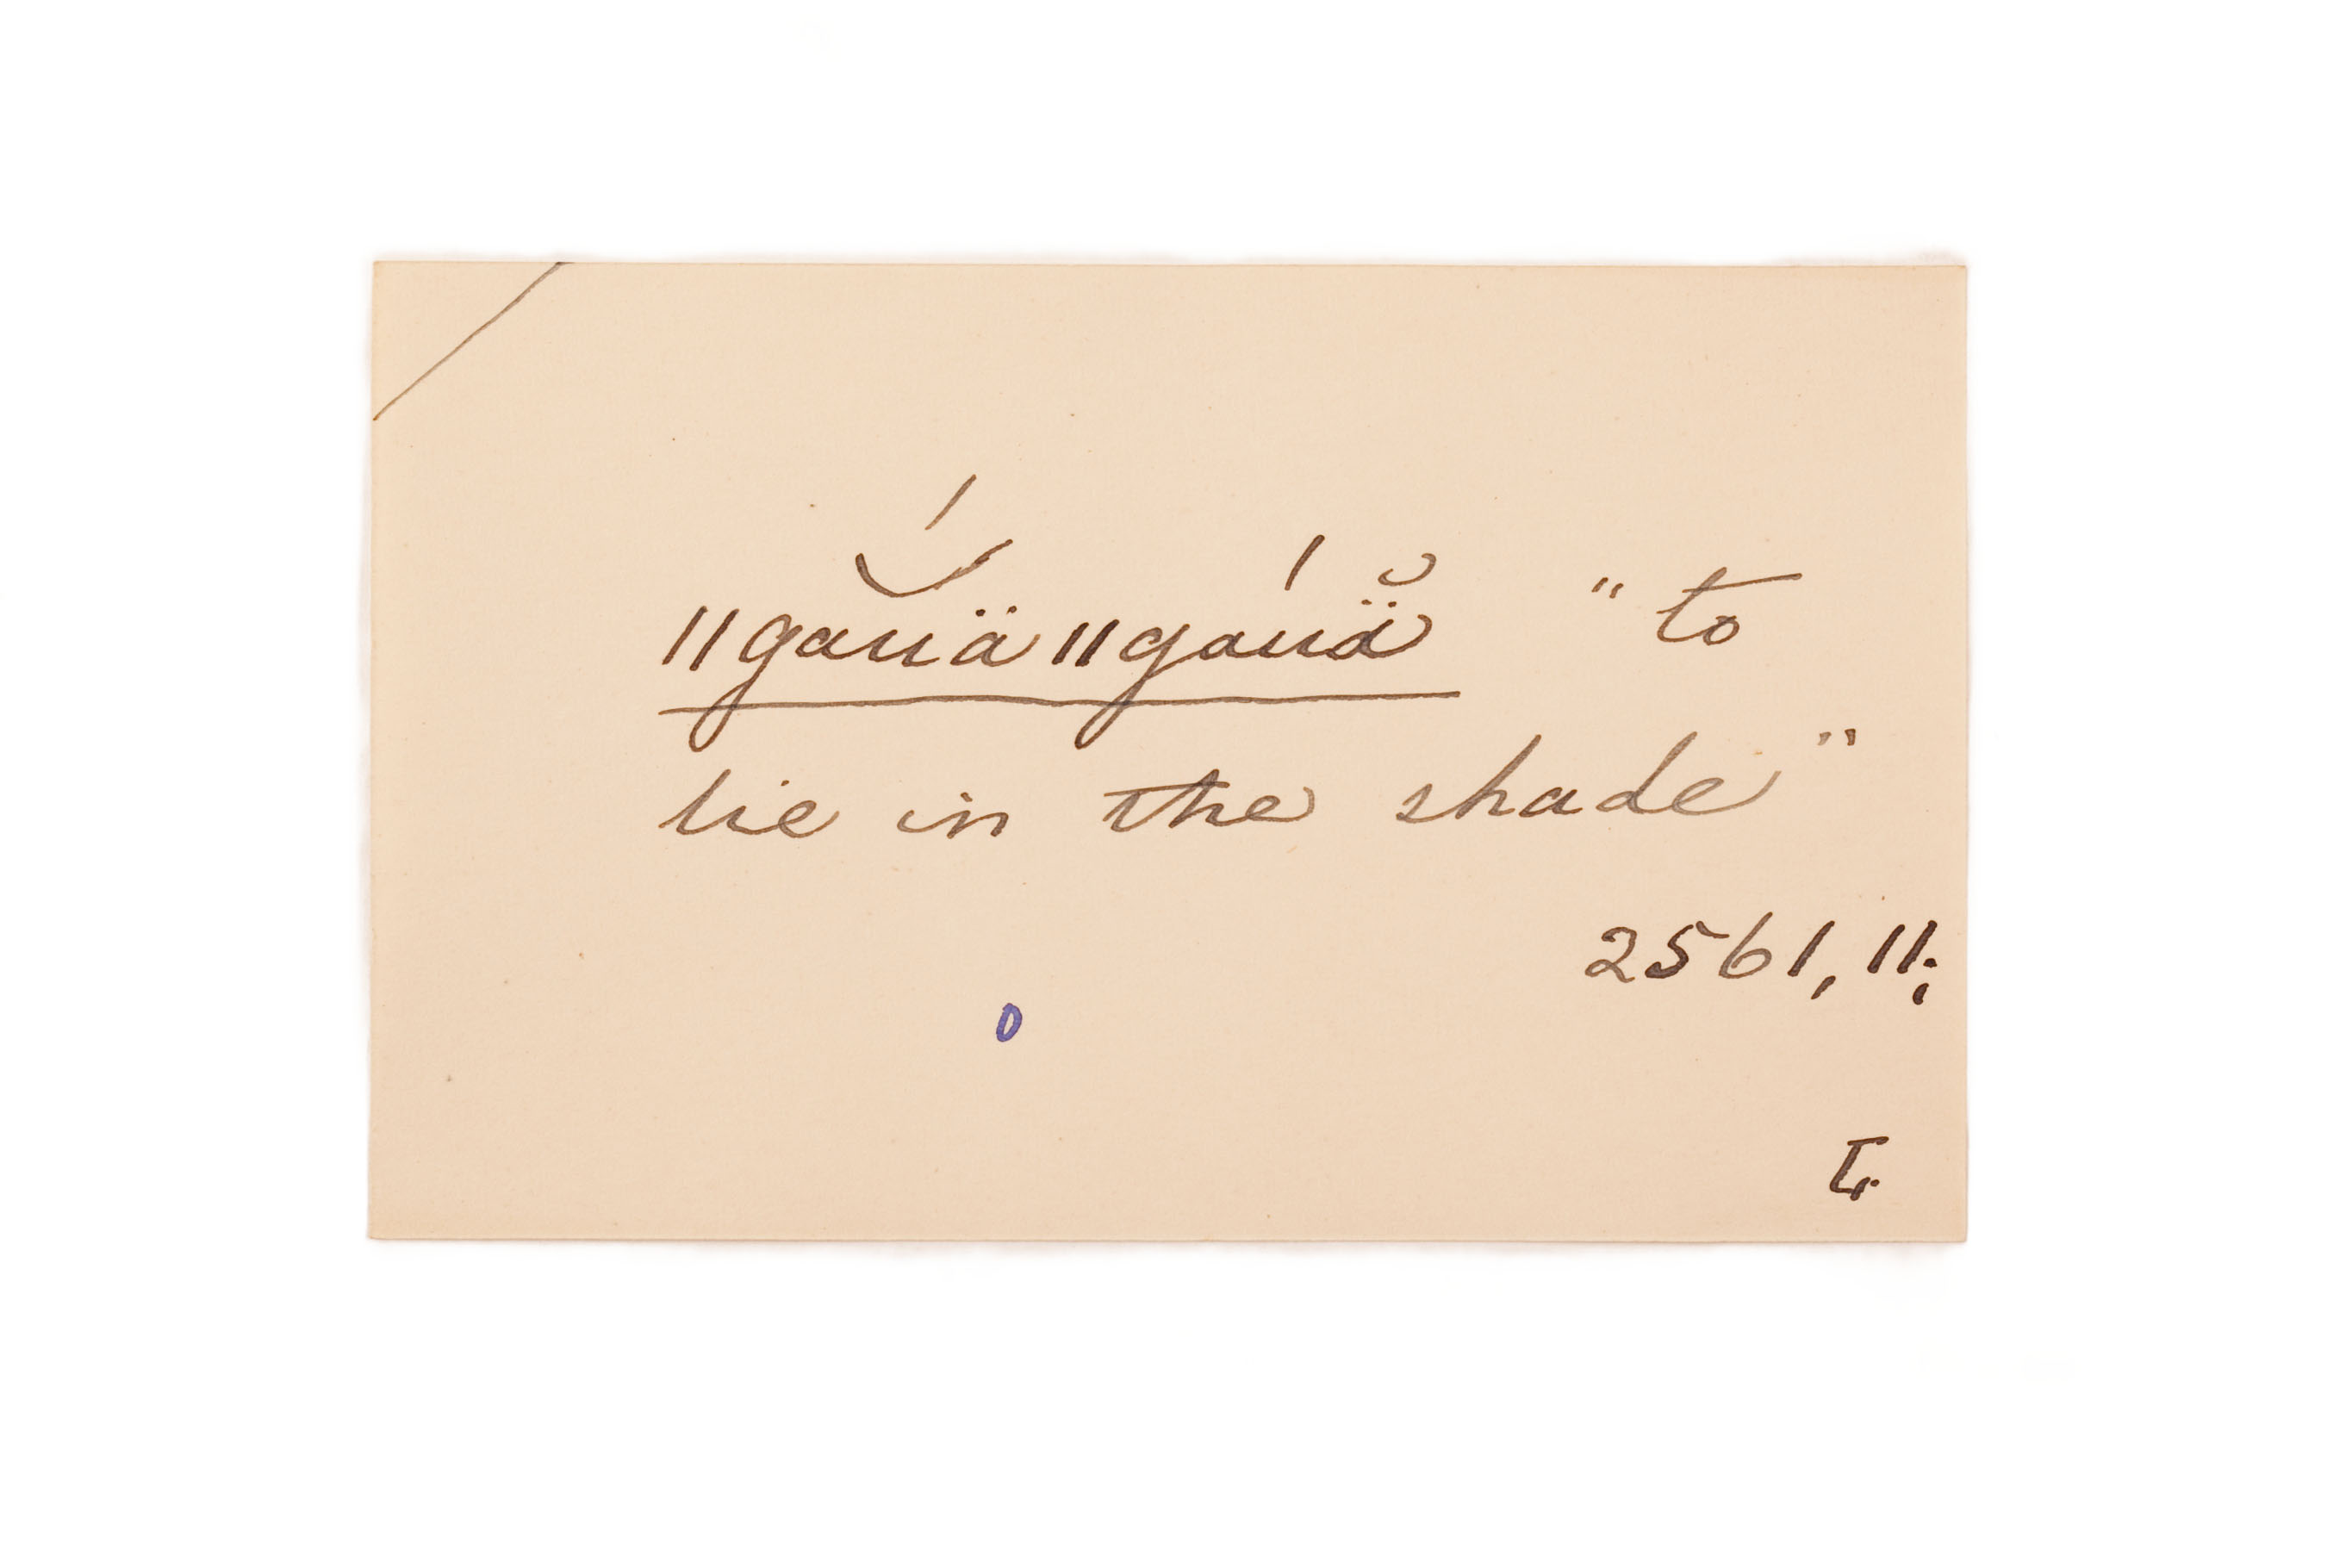 ǁgăúä ǁgáuä̆ "to
lie in the shade"
2561, 11;
L.